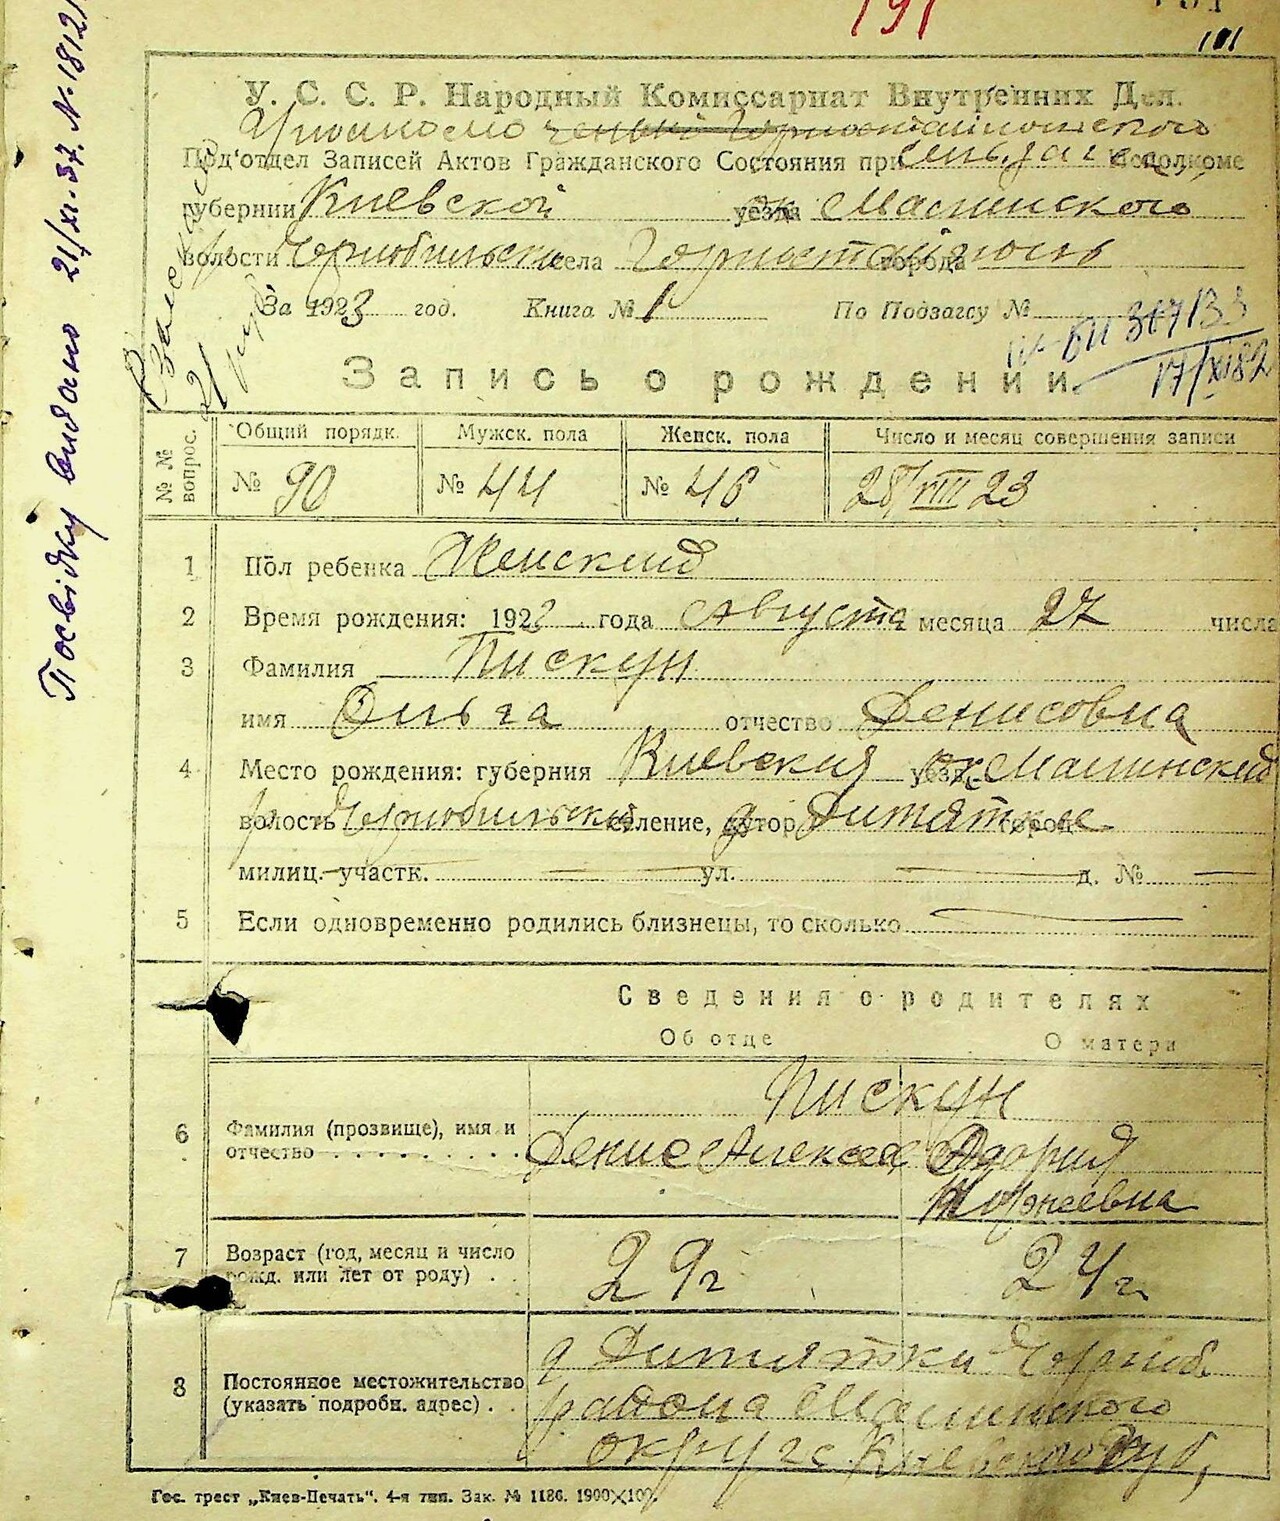 191
У. С. С. Р. Народный Комиссариат Внутренних Дел.
Под'отдел Записей Актов Гражданского Состояния при Исполкоме
губернии Киевской уезда ок Малинского
волости р Чернобильск села Горностайполь города
За 1923 год. Книга № 1 По Подзагсу №
317/33
17/XI 82
Запись о рождении.
№ № вопрос. Общий порядк. Мужск. пола Женск. пола Число и месяц совершения записи
№ 90 № 44 № 46 28/VIII 23
1 Пол ребенка Женский
2 Время рождения: 1923 года Августа месяца 27 числа
3 Фамилия Пискун
имя Ольга отчество Денисовна
4 Место рождения: губерния Киевская уезд ок Малинский
волость р Чернобильский селение, хутор, д Дитятки город
милиц. участк. — ул. — д. № —
5 Если одновременно родились близнецы, то сколько —
Сведения о родителях
Об отце О матери
Пискун
6 Фамилия (прозвище), имя и
отчество . . . . . . . . . . Денис Алексеев
7 Возраст (год, месяц и число
рожд. или лет от роду) . . 29 г 24 г.
8 Постоянное местожительство
(указать подробн. адрес) . .
д Дитятки Черноб.
района Малинского
округа Киевской Губ,
Гос. трест „Киев-Печать“. 4-я тип. Зак. № 1186. 1900×100.
Посвідку видано 21/XI-37. N-1812/